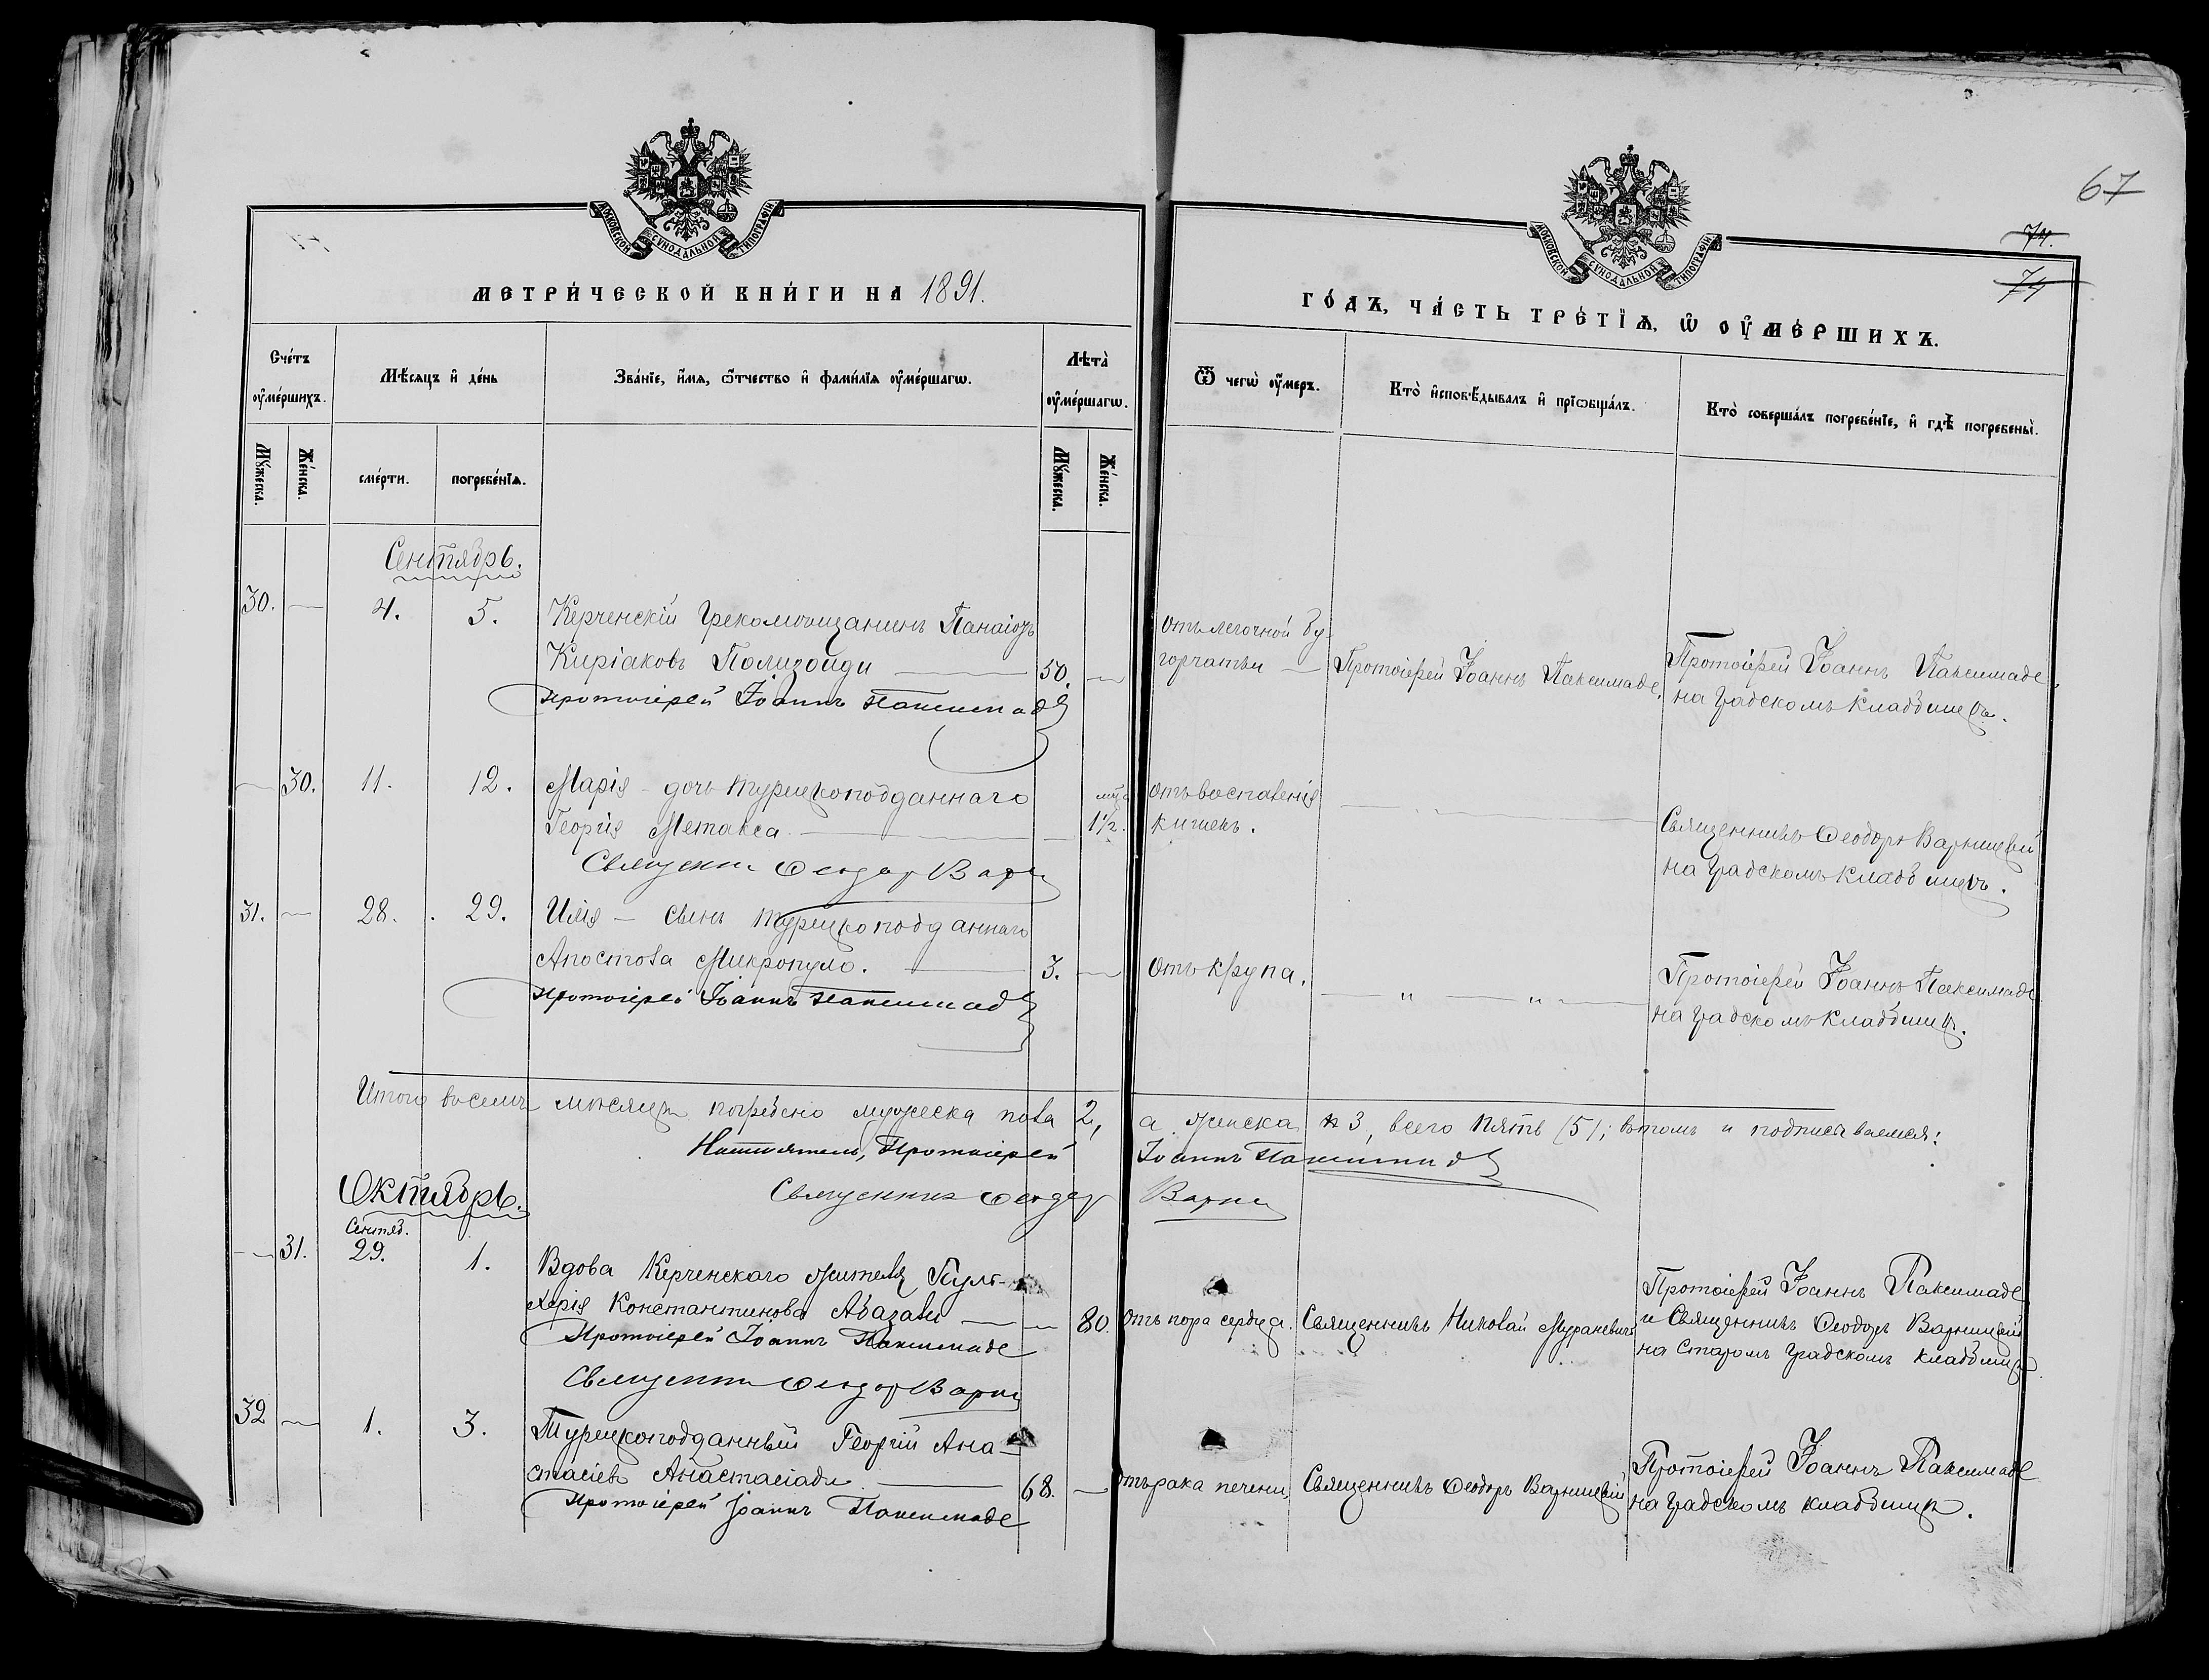 67
74.
74
МОСКОВСКОЙ СѴНОДАЛЬНОЙ ТИПОГРАФІИ
МОСКОВСКОЙ СѴНОДАЛЬНОЙ ТИПОГРАФІИ
МЕТРИ́ЧЕСКОЙ КНИ́ГИ НА 1891.
ГО́ДЪ, ЧА́СТЬ ТРЕ́ТІѦ, Ѡ҆ ОУ҆МЕ́РШИХЪ.
Сче́тъ оу҆ме́ршихъ.
Мѣ́сяцъ и҆ де́нь
Зва́нїе, и҆́мѧ, ѻ҆́тчество и҆ фами́лїѧ оу҆ме́ршагѡ.
Лѣта̀ оу҆ме́ршагѡ.
Ѿ чегѡ̀ оу҆́меръ.
Кто̀ и҆сповѣ́дывалъ и҆ прїѡбща́лъ.
Кто̀ соверша́лъ погребе́нїе, и҆ гдѣ̀ погребены̀.
Мꙋ́жеска. Же́нска. сме́рти. погребе́нїѧ. Мꙋ́жеска. Же́нска.
Сентябрь.
30. — 4. 5. Керченскій Грекомѣщанинъ Панаіотъ
Киріаковъ Полизоиди — 50. —
Протоіерей Іоаннъ Паксимаде
отъ легочной бу-
горчатки —
Протоіерей Іоаннъ Паксимаде.
Протоіерей Іоаннъ Паксимаде.
на Градскомъ кладбищѣ.
— 30. 11. 12. Марія - дочь турецкоподданнаго
Георгія Метакса — — мц 1½.
Священ Ѳеодор Варн
отъ воспаленія
кишекъ.
Священникъ Ѳеодоръ Варницкій
на Градскомъ кладбищѣ.
31. — 28. 29. Илія — сынъ турецкоподданнаго
Апостола Микропуло. — 3. —
Протоіерей Іоаннъ Паксимад
отъ крупа.
— " — " —
Протоіерей Іоаннъ Паксимаде
на градскомъ кладбищѣ.
Итого мѣсяцѣ погребено мужеска пола 2, а женска 3, всего пять (5); въ томъ и подписываемся:
Настоятель, Протоіерей Іоаннъ Паксимад
Священник Ѳеодор Варн
Октябрь.
Сентяб.
— 31. 29. 1. Вдова Керченскаго жителя Пуль-
херія Константинова Абазали — — 80.
Протоіерей Іоаннъ Паксимаде
Священ Ѳеодор Варн
отъ пора сердца.
Священникъ Николай Мураневичъ
Протоіерей Іоаннъ Паксимаде
и Священникъ Ѳеодоръ Варницкій
на Старомъ Градскомъ кладбищѣ
32 — 1. 3. Турецкоподданный Георгій Ана-
стасіевъ Анастасіади — 68. —
Протоіерей Іоаннъ Паксимаде
отъ рака печени,
Священникъ Ѳеодоръ Варницкій
Протоіерей Іоаннъ Паксимаде
на Градскомъ кладбищѣ.